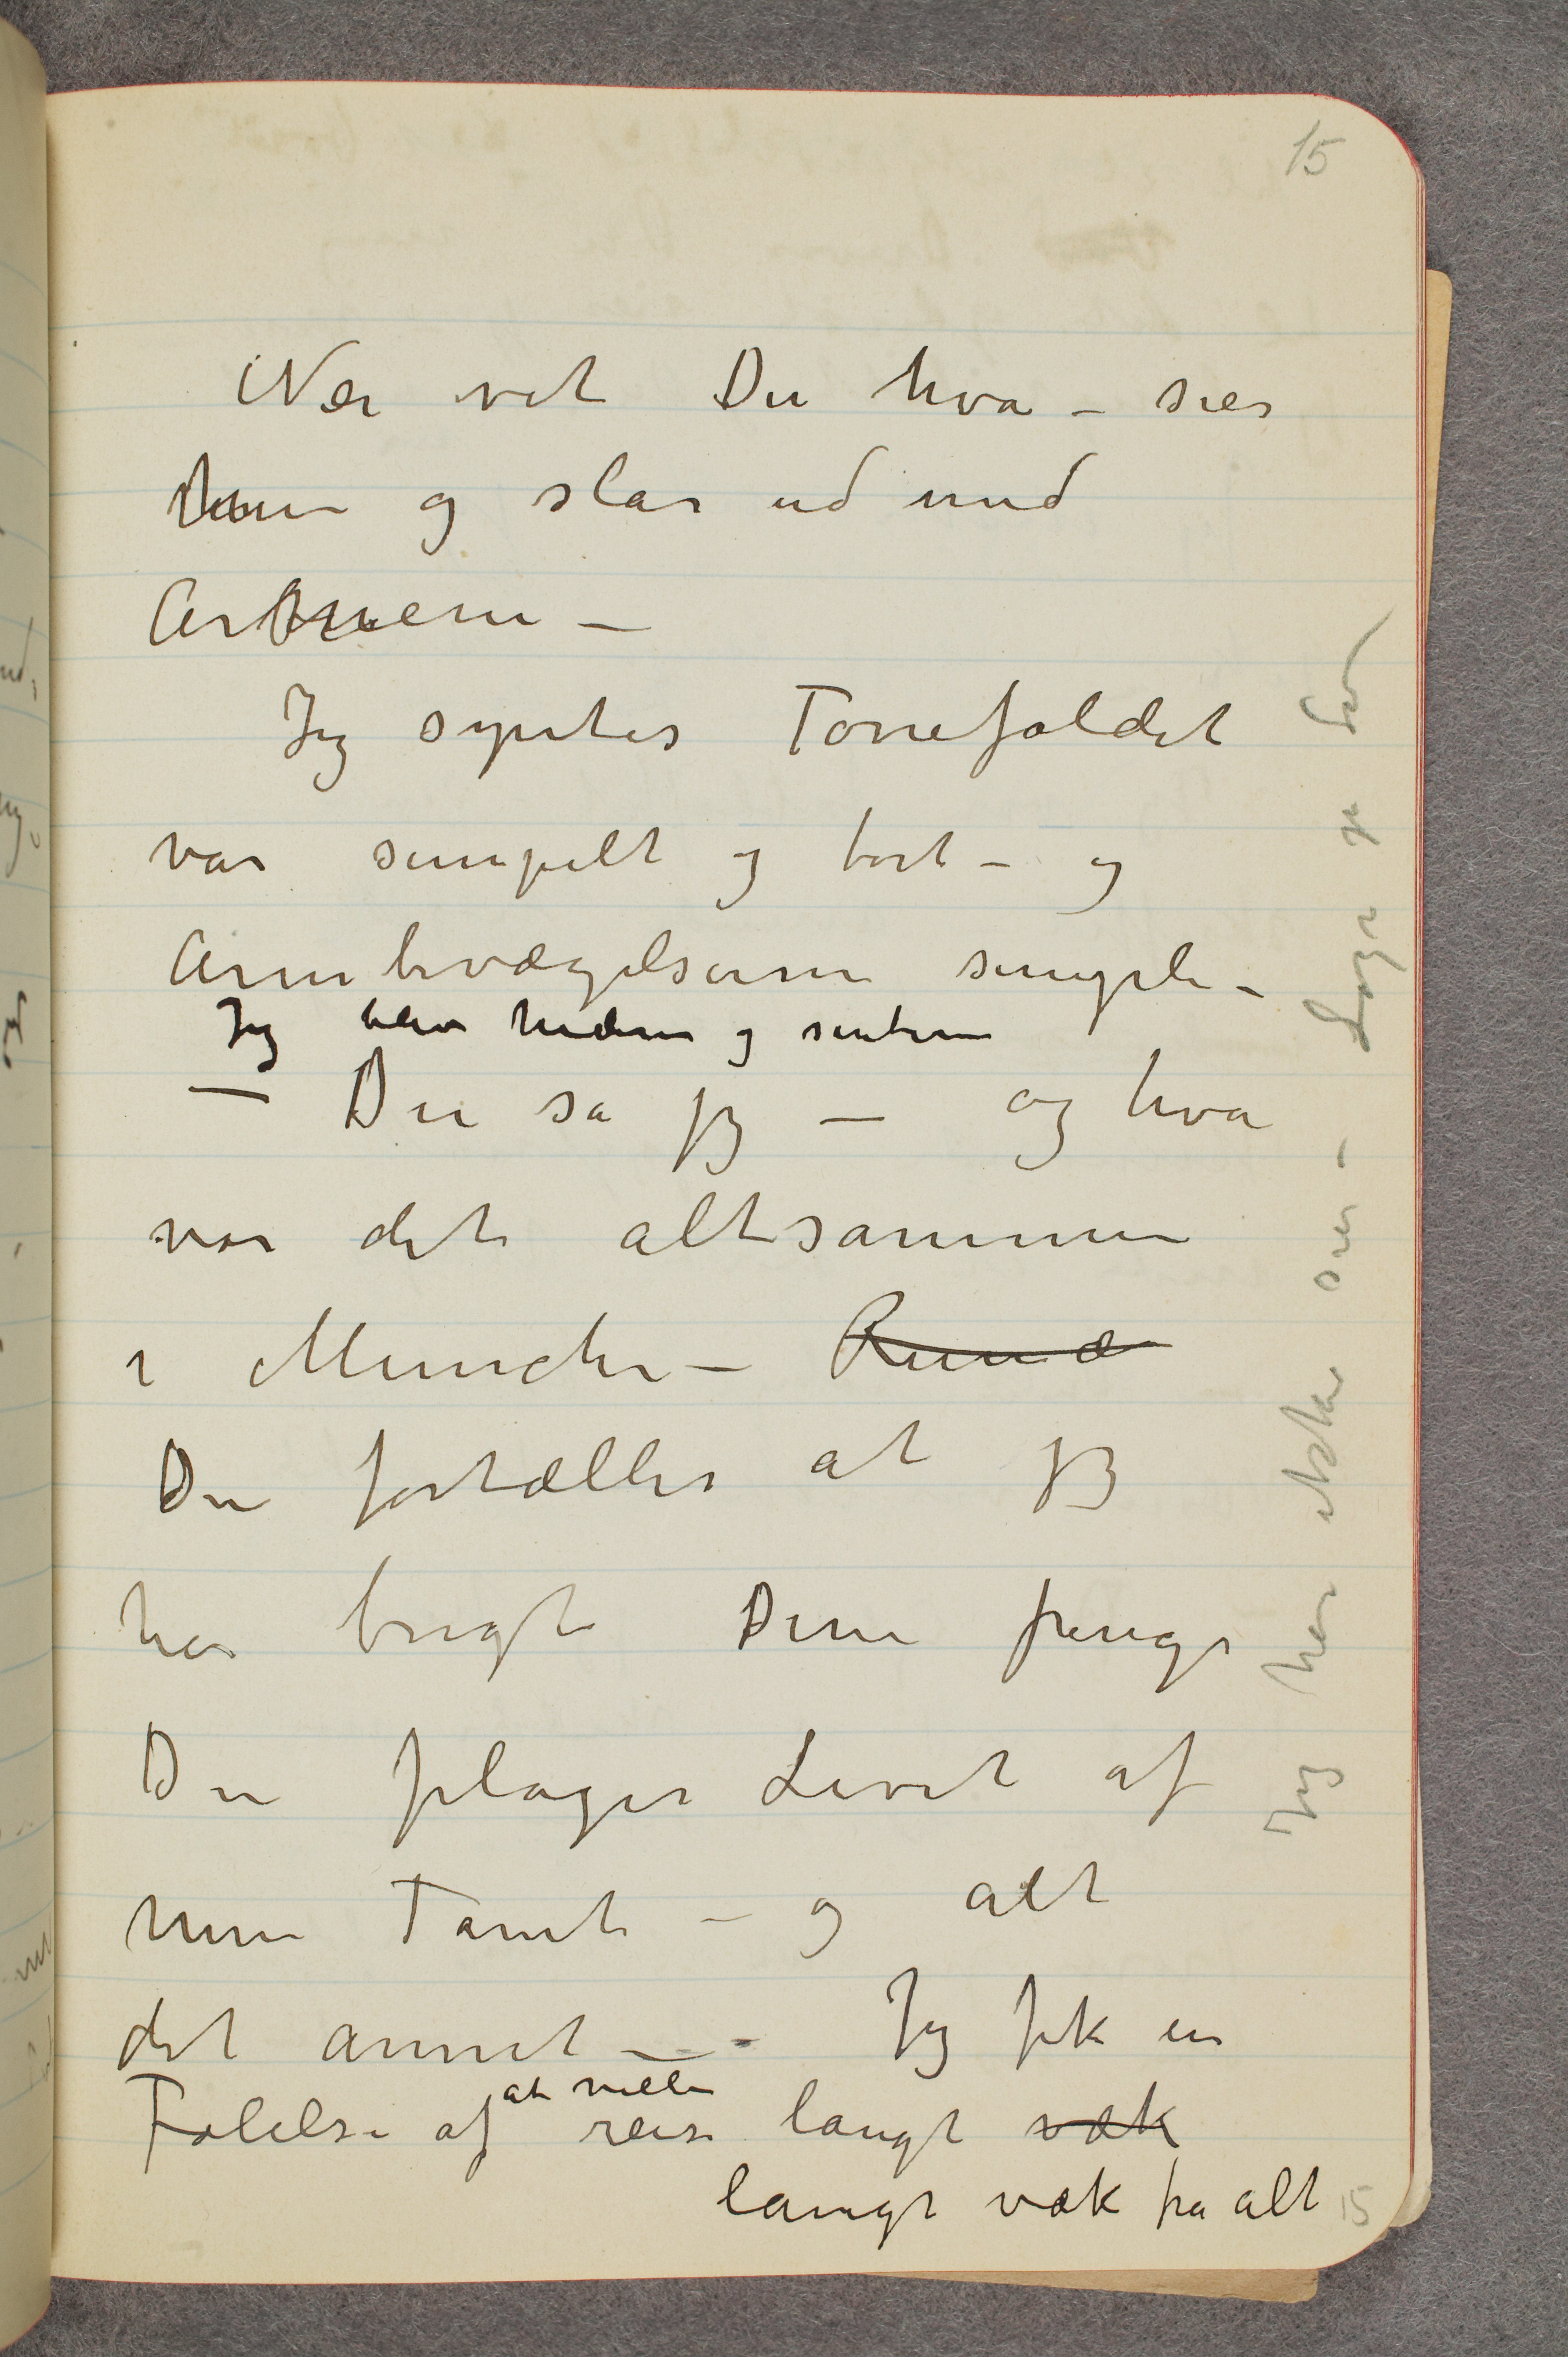 15
Nei vet Du hva – sier
hun og slår ud med
Armene –
Jeg syntes Tonefaldet
var simpelt og tørt – og
Armbevægelserne simple –
Jeg blev hidsen og sinten
– Du sa jeg – og hva
var det altsammen
i München –
Du fortæller at jeg
har brugt Dine penge
Du plager Livet af
min Tante – og alt
det annet – – Jeg fik en
Følelse af at ville reise langt væk
langt væk fra alt
Jeg har elsket sier –
15